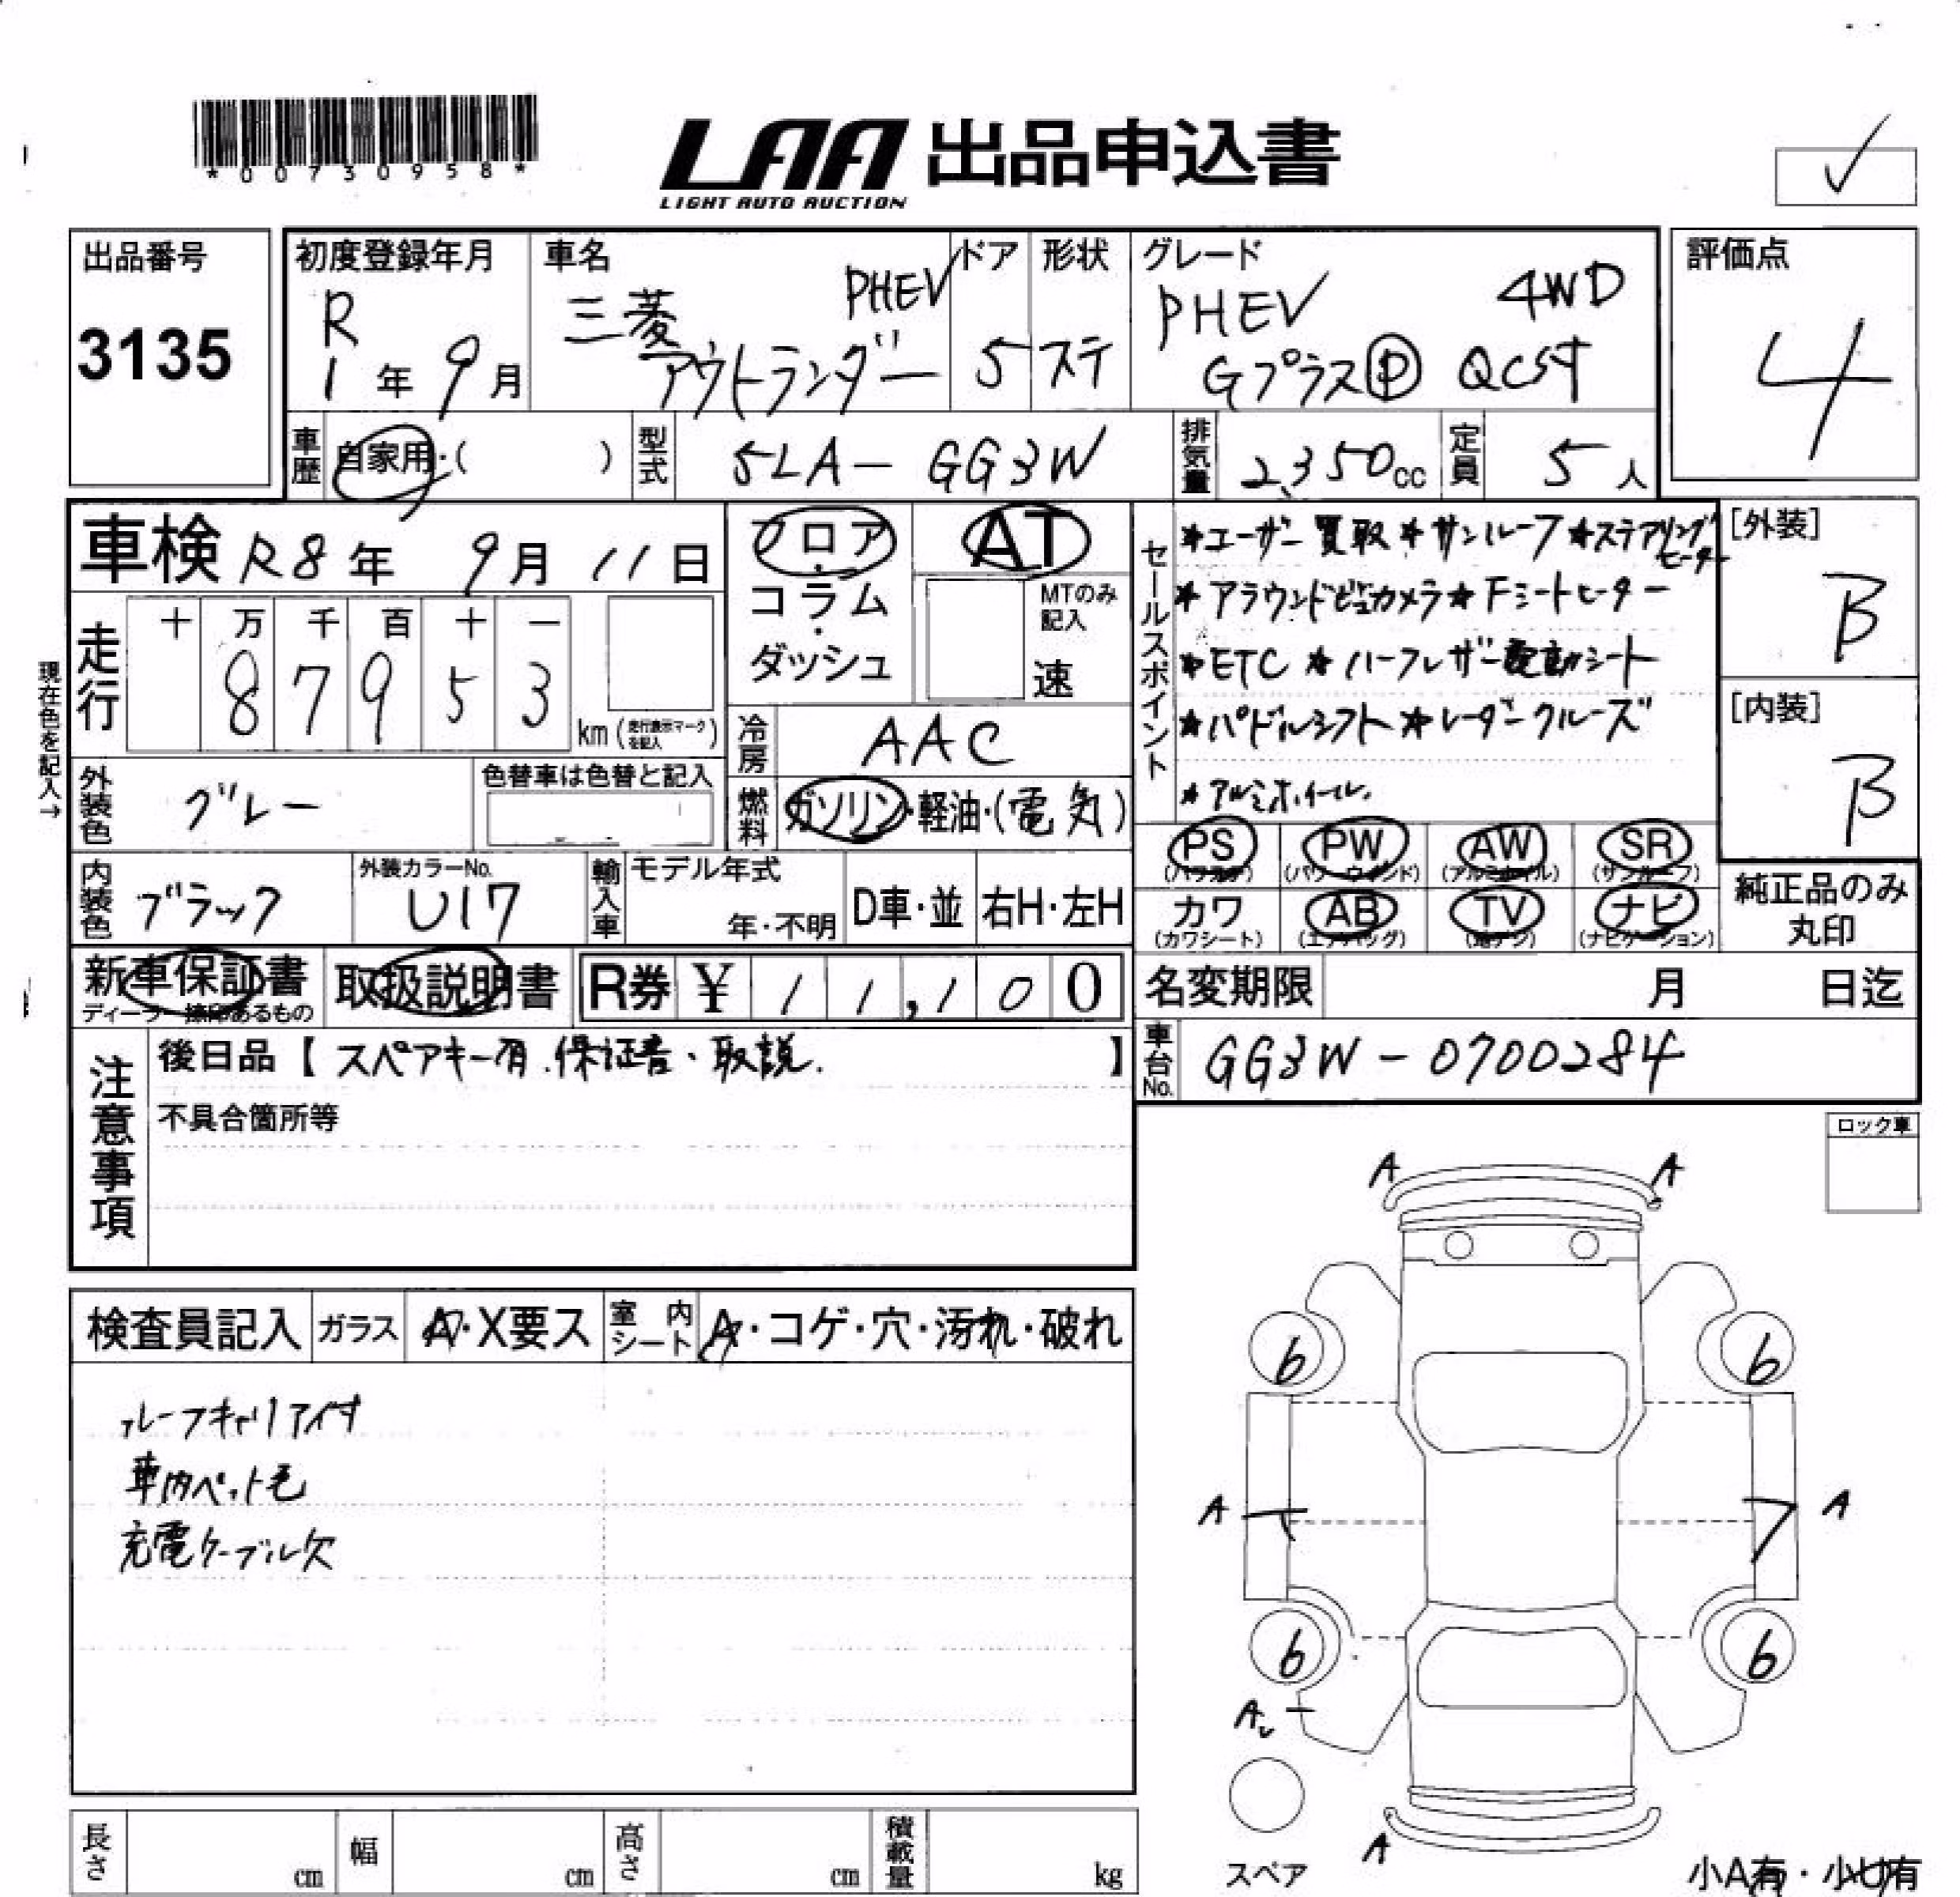 *00730958*
LAA 出品申込書
LIGHT AUTO AUCTION
✓
出品番号
3135
初度登録年月
R
1年 9月
車名
三菱 PHEV
アウトランダー
ドア
5
形状
ステ
グレード
PHEV 4WD
GプラスⓅ QC5付
評価点
4
車歴 自家用・( )
型式 5LA-GG3W
排気量 2,350cc
定員 5人
車検 R8年 9月 11日
フロア・コラム・ダッシュ
AT
MTのみ記入
速
走行
十 万 千 百 十 一
8 7 9 5 3
km (走行表示マークを記入)
現在色を記入→
冷房 AAC
燃料 ガソリン・軽油・(電気)
外装色 グレー
色替車は色替と記入
内装色 ブラック
外装カラーNo.
U17
輸入車
モデル年式
年・不明
D車・並
右H・左H
セールスポイント
★ユーザー買取★サンルーフ★ステアリングヒーター
★アラウンドビューカメラ★Fシートヒーター
★ETC ★ハーフレザー電動シート
★パドルシフト★レーダークルーズ
★アルミホイール.
[外装]
B
[内装]
B
PS PW AW SR
(パワステ) (パワーウィンド) (アルミホイル) (サンルーフ)
カワ AB TV ナビ
(カワシート) (エアバッグ) (地デジ) (ナビゲーション)
純正品のみ
丸印
新車保証書
ディーラー捺印あるもの
取扱説明書
R券 ¥ 11,100
名変期限 月 日迄
車台No. GG3W-0700284
注意事項
後日品【スペアキー有.保証書・取説.】
不具合箇所等
ロック車
検査員記入
ガラス A・X要ス
室内シート A・コゲ・穴・汚れ・破れ
ルーフキャリア付
車内ペット毛
充電ケーブル欠
A A
6 6
A A
6 6
A
スペア
A
小A有・小U有
長さ cm
幅 cm
高さ cm
積載量 kg